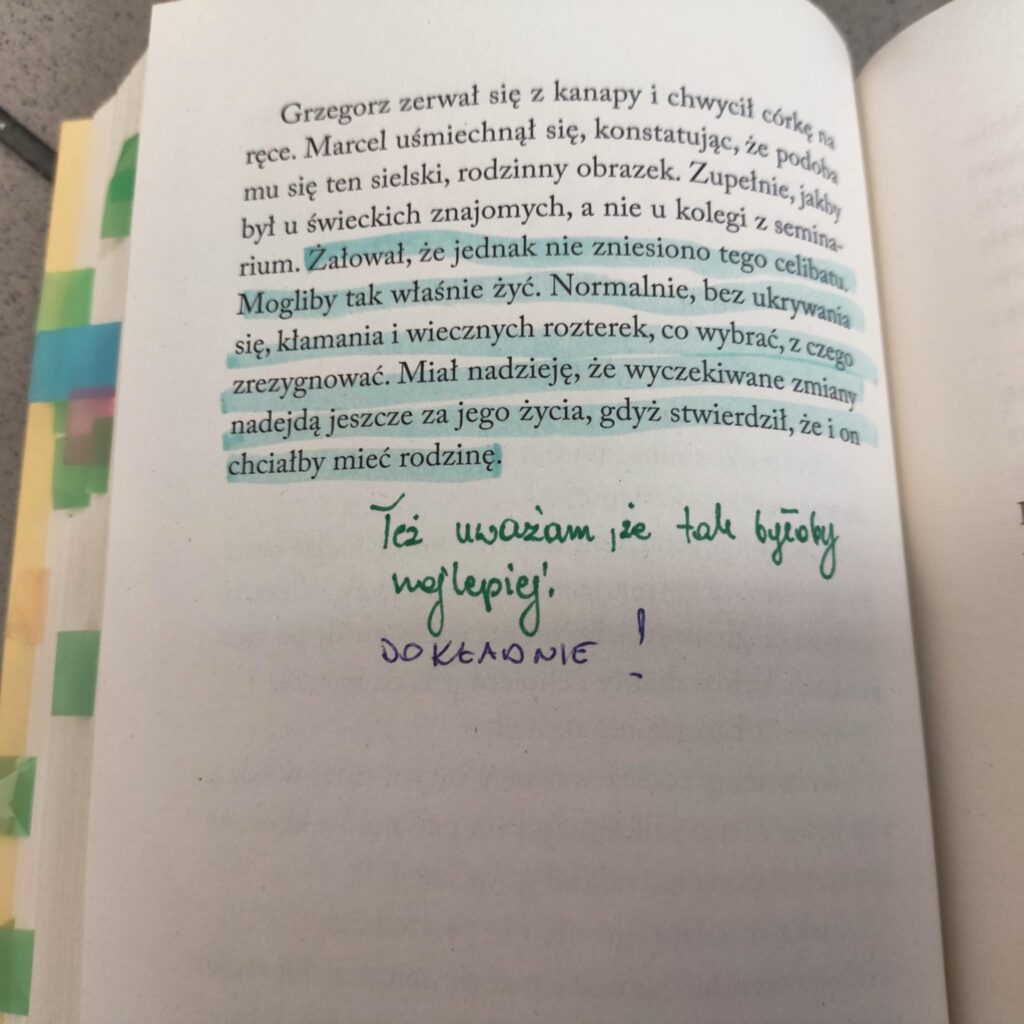 Grzegorz zerwał się z kanapy i chwycił córkę na
ręce. Marcel uśmiechnął się, konstatując, że podoba
mu się ten sielski, rodzinny obrazek. Zupełnie, jakby
był u świeckich znajomych, a nie u kolegi z semina-
rium. Żałował, że jednak nie zniesiono tego celibatu.
Mogliby tak właśnie żyć. Normalnie, bez ukrywania
się, kłamania i wiecznych rozterek, co wybrać, z czego
zrezygnować. Miał nadzieję, że wyczekiwane zmiany
nadejdą jeszcze za jego życia, gdyż stwierdził, że i on
chciałby mieć rodzinę.
Też uważam, że tak byłoby
najlepiej!
DOKŁADNIE !